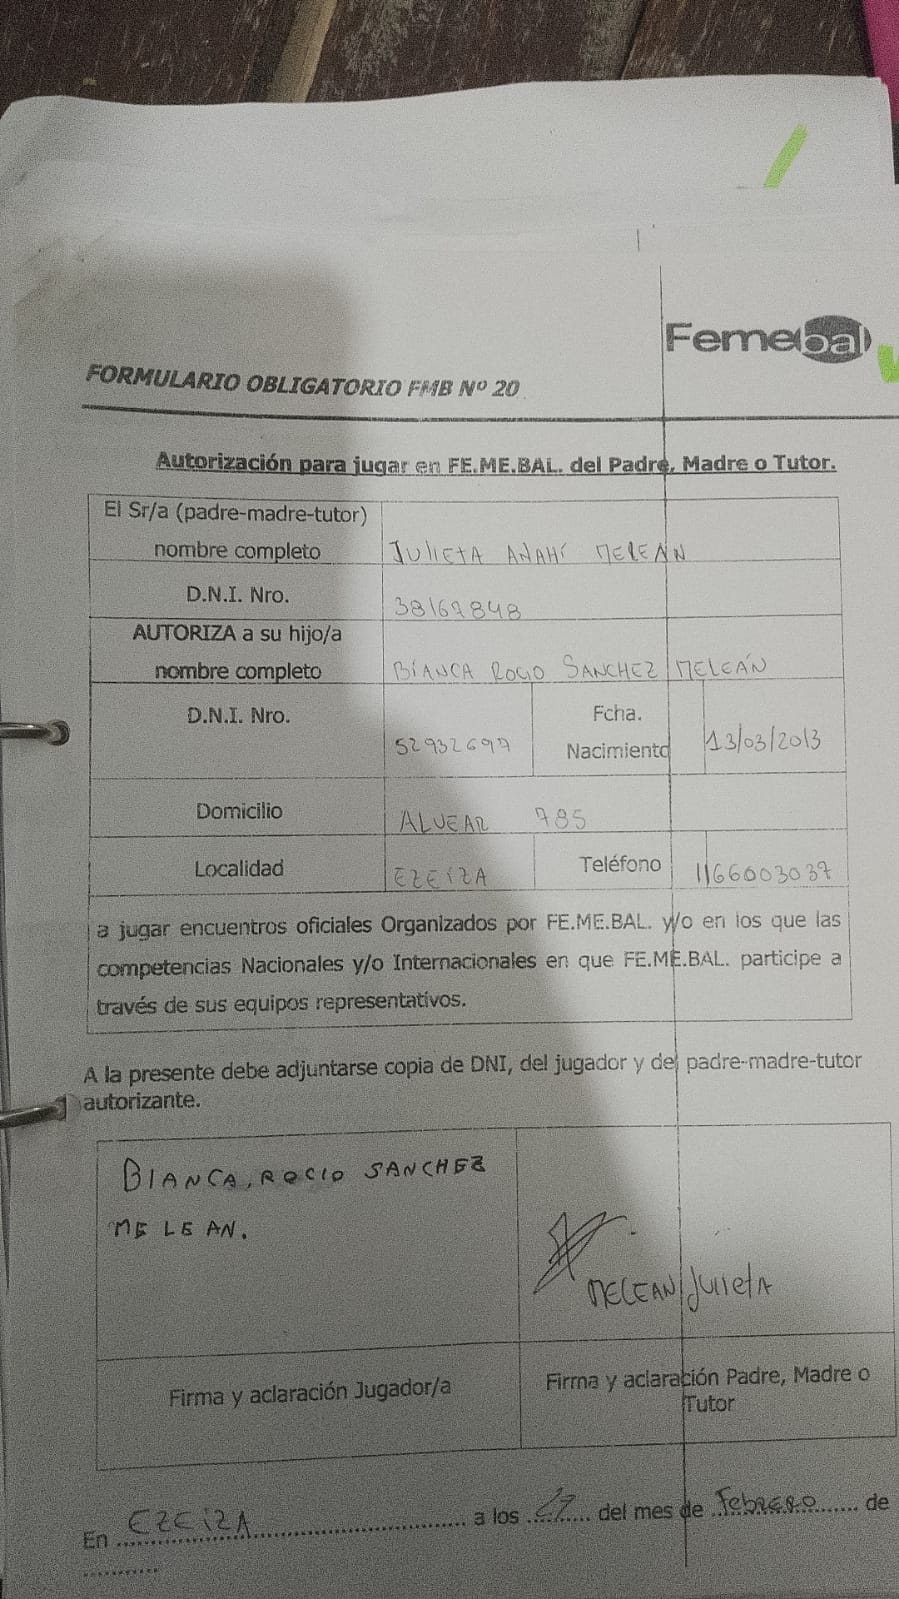 Femebal
FORMULARIO OBLIGATORIO FMB Nº 20
Autorización para jugar en FE.ME.BAL. del Padre, Madre o Tutor.
El Sr/a (padre-madre-tutor)
nombre completo JULIETA ANAHÍ MELEÁN
D.N.I. Nro. 38167848
AUTORIZA a su hijo/a
nombre completo BIANCA ROCIO SANCHEZ MELEÁN
D.N.I. Nro. Fcha.
Nacimiento 13/03/2013
Domicilio ALVEAR 785
Localidad EZEIZA Teléfono 1166003037
a jugar encuentros oficiales Organizados por FE.ME.BAL. y/o en los que las
competencias Nacionales y/o Internacionales en que FE.ME.BAL. participe a
través de sus equipos representativos.
A la presente debe adjuntarse copia de DNI, del jugador y del padre-madre-tutor
autorizante.
BIANCA, ROCIO SANCHEZ
MELEAN.
MELEAN JULIETA
Firma y aclaración Jugador/a Firma y aclaración Padre, Madre o
Tutor
En EZEIZA a los del mes de Febrero de